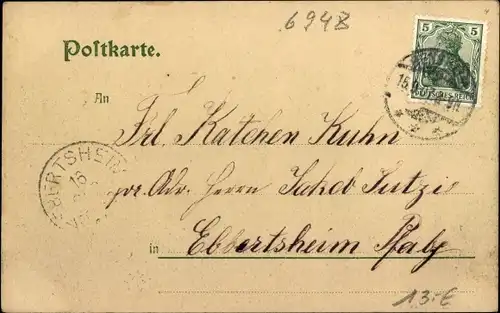 6948
Postkarte.
5
DEUTSCHES REICH
An
Frl. Katchen Kuhn
pr. Adr. Herrn Jakob Lutzi
EBERTSHEIM
16
in Ebbertsheim Pfalz
13.-€